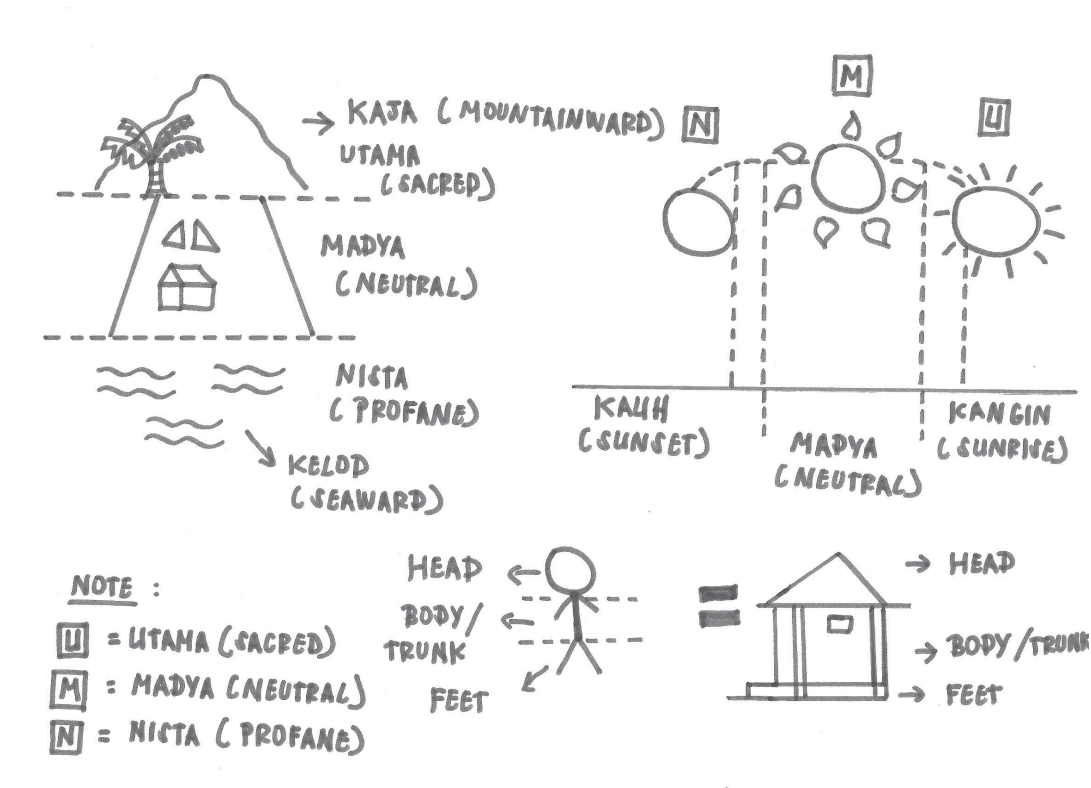 KAJA (MOUNTAINWARD)
UTAMA
(SACRED)
MADYA
(NEUTRAL)
NISTA
(PROFANE)
KELOD
(SEAWARD)
N
M
U
KAUH
(SUNSET)
MADYA
(NEUTRAL)
KANGIN
(SUNRISE)
NOTE :
U = UTAMA (SACRED)
M = MADYA (NEUTRAL)
N = NISTA (PROFANE)
HEAD
BODY/
TRUNK
FEET
=
HEAD
BODY/TRUNK
FEET